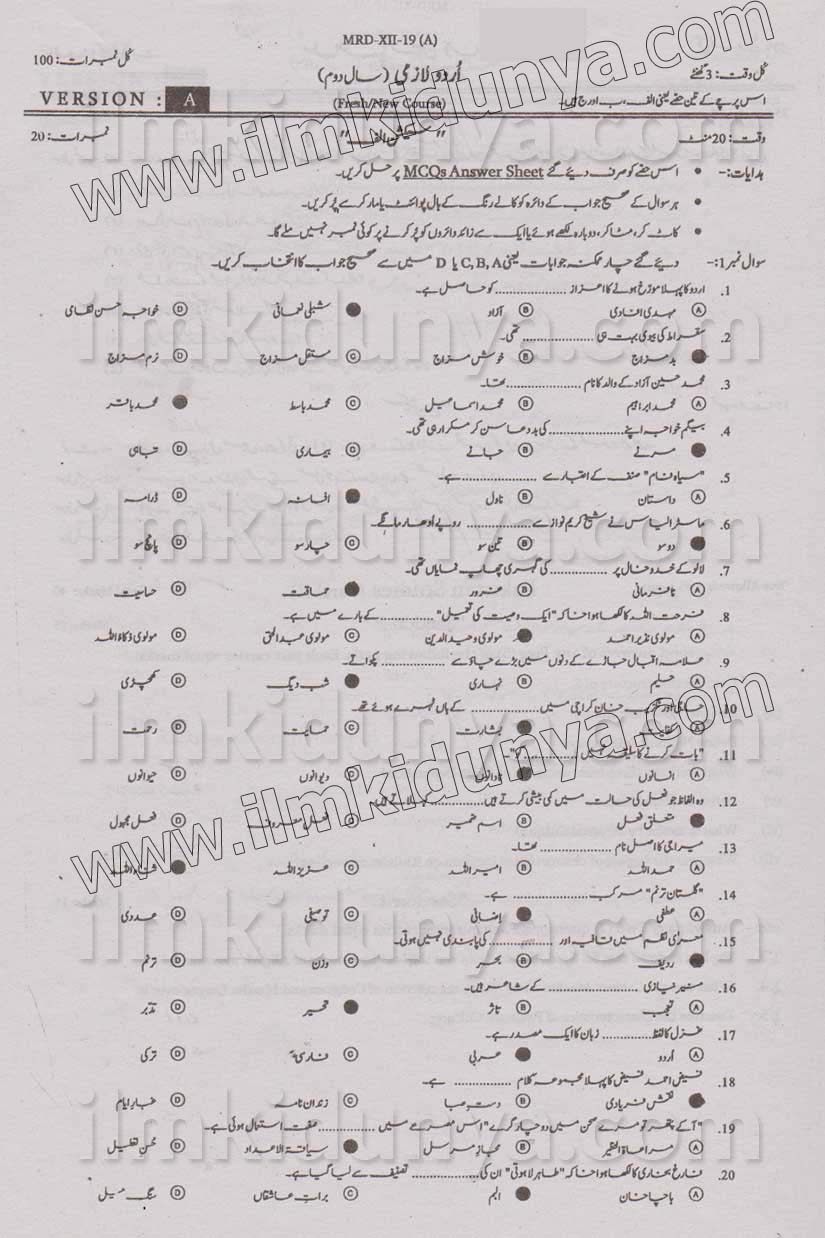 MRD-XII-19 (A)
کل وقت: 3 گھنٹے
اُردو لازمی (سال دوم)
کل نمبرات: 100
اس پرچے کے تین حصے یعنی الف، ب اور ج ہیں۔
(Fresh/New Course)
VERSION : A
وقت: 20 منٹ
"سیکشن الف"
نمبرات: 20
ہدایات:-
• اس حصے کو صرف دیئے گئے MCQs Answer Sheet پر حل کریں۔
• ہر سوال کے صحیح جواب کے دائرہ کو کالے رنگ کے بال پوائنٹ یا مارکر سے پُر کریں۔
• کاٹ کر، مٹا کر، دوبارہ لکھے ہوئے یا ایک سے زائد دائروں کو پُر کرنے پر کوئی نمبر نہیں ملے گا۔
سوال نمبر 1:- دیئے گئے چار ممکنہ جوابات یعنی C, B, A یا D میں سے صحیح جواب کا انتخاب کریں۔
1. اردو کا پہلا مؤرخ ہونے کا اعزاز .................. کو حاصل ہے۔
Ⓐ مہدی افادی Ⓑ آزاد ● شبلی نعمانی Ⓓ خواجہ حسن نظامی
2. سقراط کی بیوی بہت ہی .................. تھی۔
● بد مزاج Ⓑ خوش مزاج Ⓒ مستقل مزاج Ⓓ نرم مزاج
3. محمد حسین آزاد کے والد کا نام .................. تھا۔
Ⓐ محمد ابراہیم Ⓑ محمد اسماعیل Ⓒ محمد باسط ● محمد باقر
4. بیگم خواجہ اپنے .................. کی بددعا سن کر مسکرا رہی تھی۔
● مرنے Ⓑ جانے Ⓒ بیماری Ⓓ تباہی
5. "سیاہ فام" صنف کے اعتبار سے .................. ہے۔
Ⓐ داستان Ⓑ ناول ● افسانہ Ⓓ ڈرامہ
6. ماسٹر الیاس نے شیخ کریم نواز سے .................. روپے اُدھار مانگے۔
● دو سو Ⓑ تین سو Ⓒ چار سو Ⓓ پانچ سو
7. لالو کے خدوخال پر .................. کی گہری چھاپ نمایاں تھی۔
Ⓐ نافرمانی Ⓑ غرور ● حماقت Ⓓ حساسیت
8. فرحت اللہ کا لکھا ہوا خاکہ "ایک وصیت کی تعمیل" .............. کے بارے میں ہے۔
Ⓐ مولوی نذیر احمد ● مولوی وحید الدین Ⓒ مولوی عبدالحق Ⓓ مولوی ذکاؤ اللہ
9. علامہ اقبال جاڑے کے دنوں میں بڑے چاؤ سے .................. پکواتے۔
Ⓐ حلیم Ⓑ نہاری ● شب دیگ Ⓓ کھچڑی
10. خان کراچی میں .................. کے ہاں ٹھہرے ہوئے تھے۔
● بشارت Ⓒ حمایت Ⓓ رحمت
11. "بات کرنے کا سلیقہ نہیں .................. کو"۔
Ⓐ انسانوں ● نادانوں Ⓒ دیوانوں Ⓓ حیوانوں
12. وہ الفاظ جو فعل کی حالت میں کمی بیشی کرتے ہیں .............. کہلاتے ہیں
● متعلق فعل Ⓑ اسم ضمیر Ⓒ فعل معروف Ⓓ فعل مجہول
13. میراجی کا اصل نام .................. تھا۔
Ⓐ حمد اللہ Ⓑ امیر اللہ Ⓒ عزیز اللہ ● ثناء اللہ
14. "گلستان ترنم" مرکب .................. ہے۔
Ⓐ عطفی ● اِضافی Ⓒ توصیفی Ⓓ عددی
15. معریٰ نظم میں قافیہ اور .................. کی پابندی نہیں ہوتی۔
● ردیف Ⓑ بحر Ⓒ وزن Ⓓ ترنم
16. منیر نیازی .................. کے شاعر ہیں۔
Ⓐ تعجب Ⓑ تاثر ● تحیر Ⓓ تدبر
17. غزل کا لفظ .............. زبان کا ایک مصدر ہے۔
Ⓐ اُردو ● عربی Ⓒ فارسی Ⓓ ترکی
18. فیض احمد فیض کا پہلا مجموعہ کلام .............. ہے۔
● نقش فریادی Ⓑ دستِ صبا Ⓒ زنداں نامہ Ⓓ غبارِ ایام
19. "آ کے پتھر تو مرے صحن میں دو چار گرے" اس مصرعے میں .................. صنعت استعمال ہوئی ہے۔
Ⓐ مراعاۃ النظیر Ⓑ مجاز مرسل ● سیاقۃ الاعداد Ⓓ حُسنِ تعلیل
20. فارغ بخاری کا لکھا ہوا خاکہ "طاہر لاہوتی" ان کی .................. تصنیف سے لیا گیا ہے۔
Ⓐ باچا خان ● البم Ⓒ براتِ عاشقاں Ⓓ سنگ میل
www.ilmkidunya.com
www.ilmkidunya.com
ilmkidunya.com
ilmkidunya.com
ilmkidunya.com
ilmkidunya.com
ilmkidunya.com
ilmkidunya.com